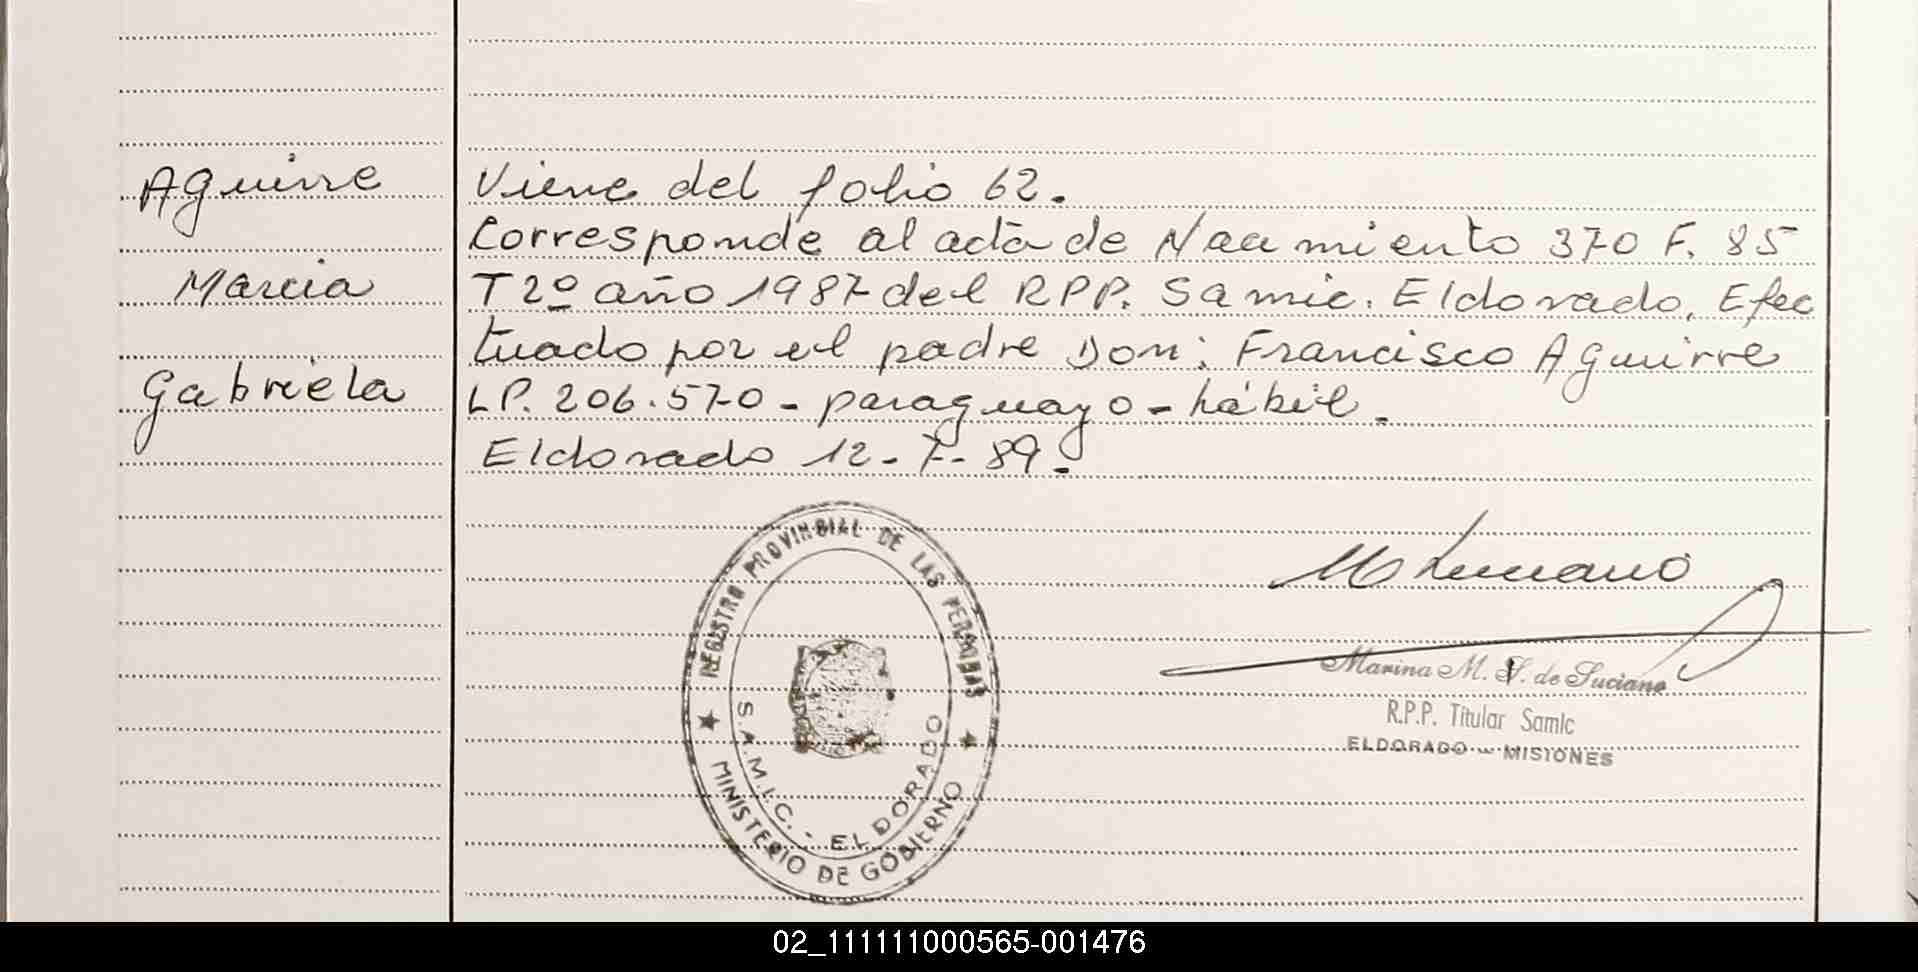 Aguirre
Marcia
Gabriela
Viene del folio 62.
Corresponde al acta de Nacimiento 370 F. 85
T 2º año 1987 del RPP. Samic. Eldorado. Efec
tuado por el padre Don: Francisco Aguirre
LP. 206.570 - paraguayo - hábil.
Eldorado 12-7-89.
REGISTRO PROVINCIAL DE LAS PERSONAS
S.A.M.I.C. - ELDORADO
MINISTERIO DE GOBIERNO
Marina M. V. de Luciano
R.P.P. Titular Samic
ELDORADO - MISIONES
02_111111000565-001476